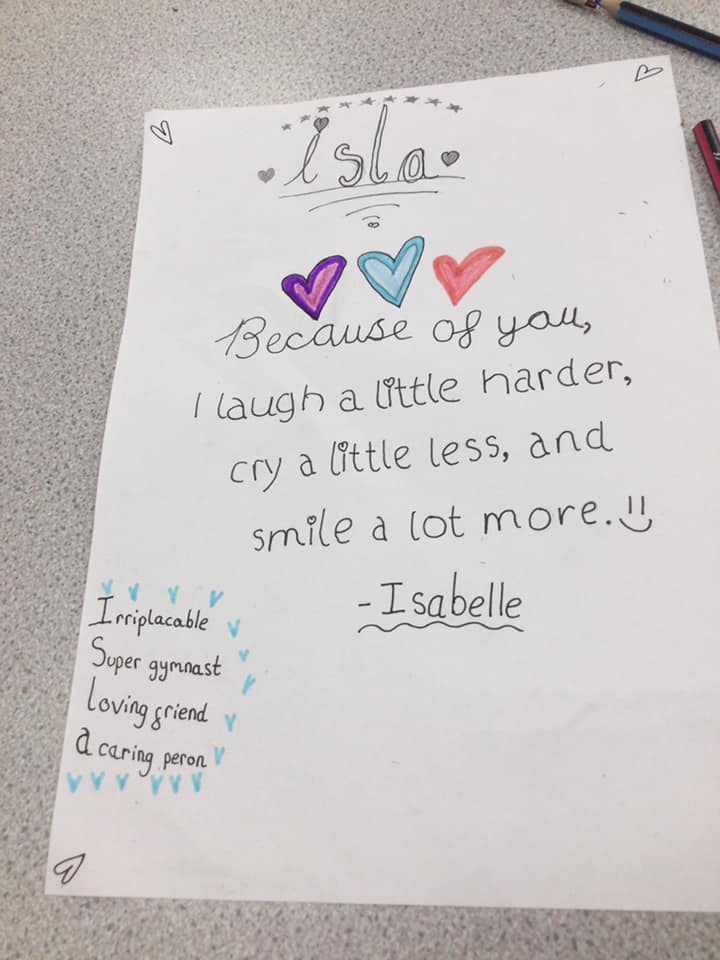 isla
Because of you,
I laugh a little harder,
cry a little less, and
smile a lot more.
-Isabelle
Irriplacable
Super gymnast
loving friend
a caring peron